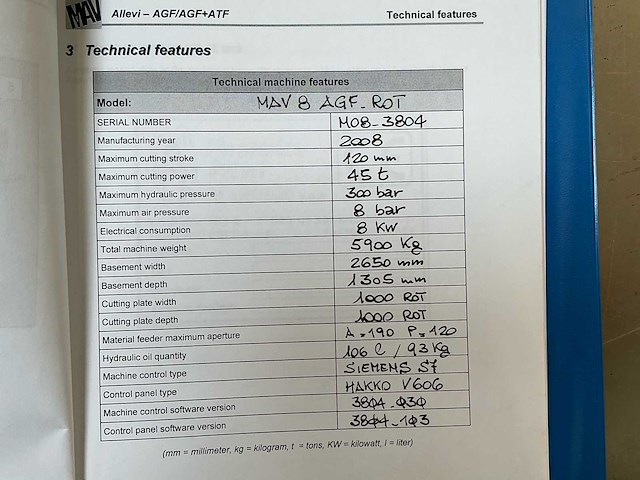 MAV Allevi – AGF/AGF+ATF Technical features
3 Technical features
Technical machine features
Model: MAV 8 AGF_ROT
SERIAL NUMBER M08_3804
Manufacturing year 2008
Maximum cutting stroke 120 mm
Maximum cutting power 45 t
Maximum hydraulic pressure 300 bar
Maximum air pressure 8 bar
Electrical consumption 8 KW
Total machine weight 5900 Kg
Basement width 2650 mm
Basement depth 1305 mm
Cutting plate width 1000 ROT
Cutting plate depth 1000 ROT
Material feeder maximum aperture A=190 P=120
Hydraulic oil quantity 106 l / 93 Kg
Machine control type SIEMENS S7
Control panel type HAKKO V606
Machine control software version 38Φ4_Φ3Φ
Control panel software version 38Φ4_1Φ3
(mm = millimeter, kg = kilogram, t = tons, KW = kilowatt, l = liter)